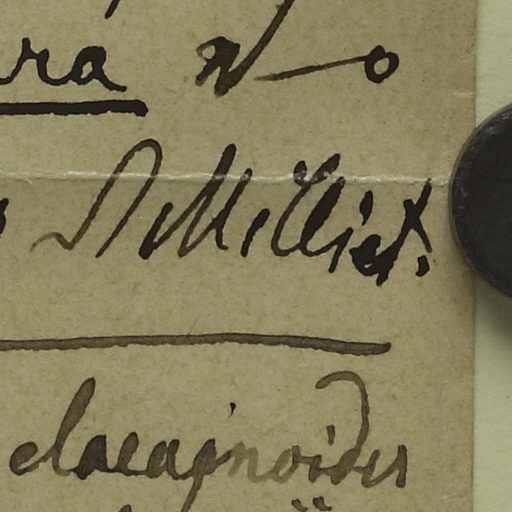 ra No
Milliet.
elaeagnoides